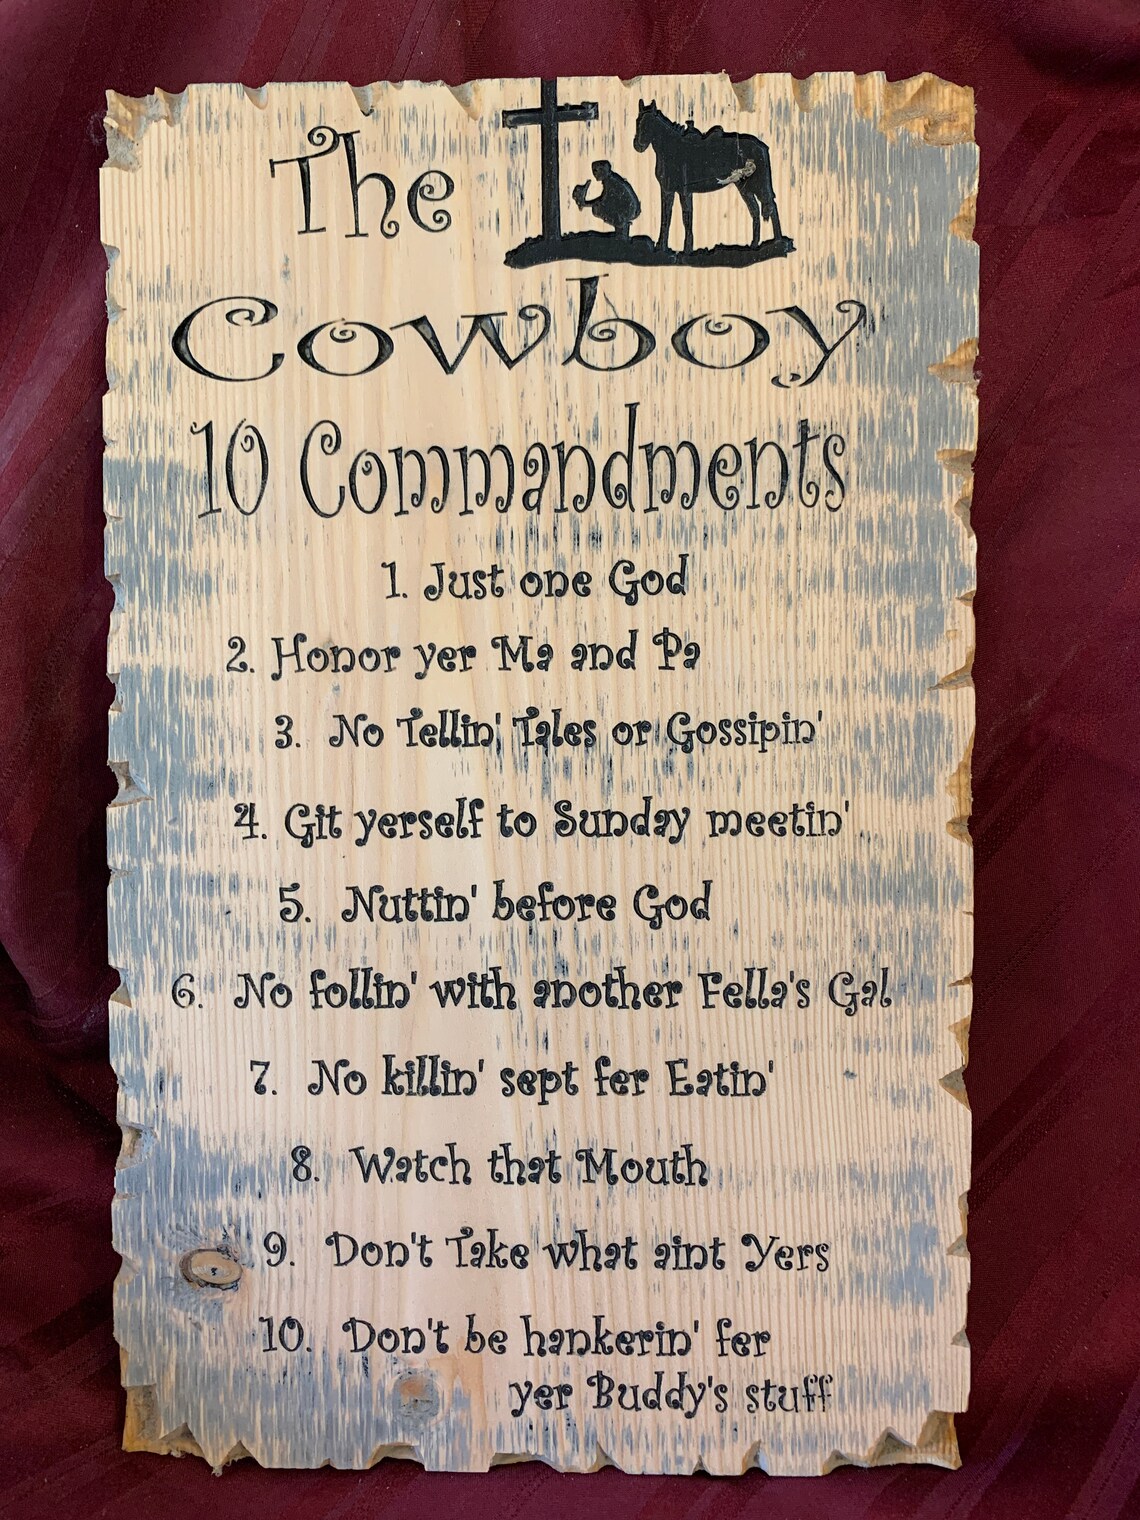 The
Cowboy
10 Commandments
1. Just one God
2. Honor yer Ma and Pa
3. No Tellin' Tales or Gossipin'
4. Git yerself to Sunday meetin'
5. Nuttin' before God
6. No follin' with another Fella's Gal
7. No killin' sept fer Eatin'
8. Watch that Mouth
9. Don't Take what aint Yers
10. Don't be hankerin' fer
yer Buddy's stuff